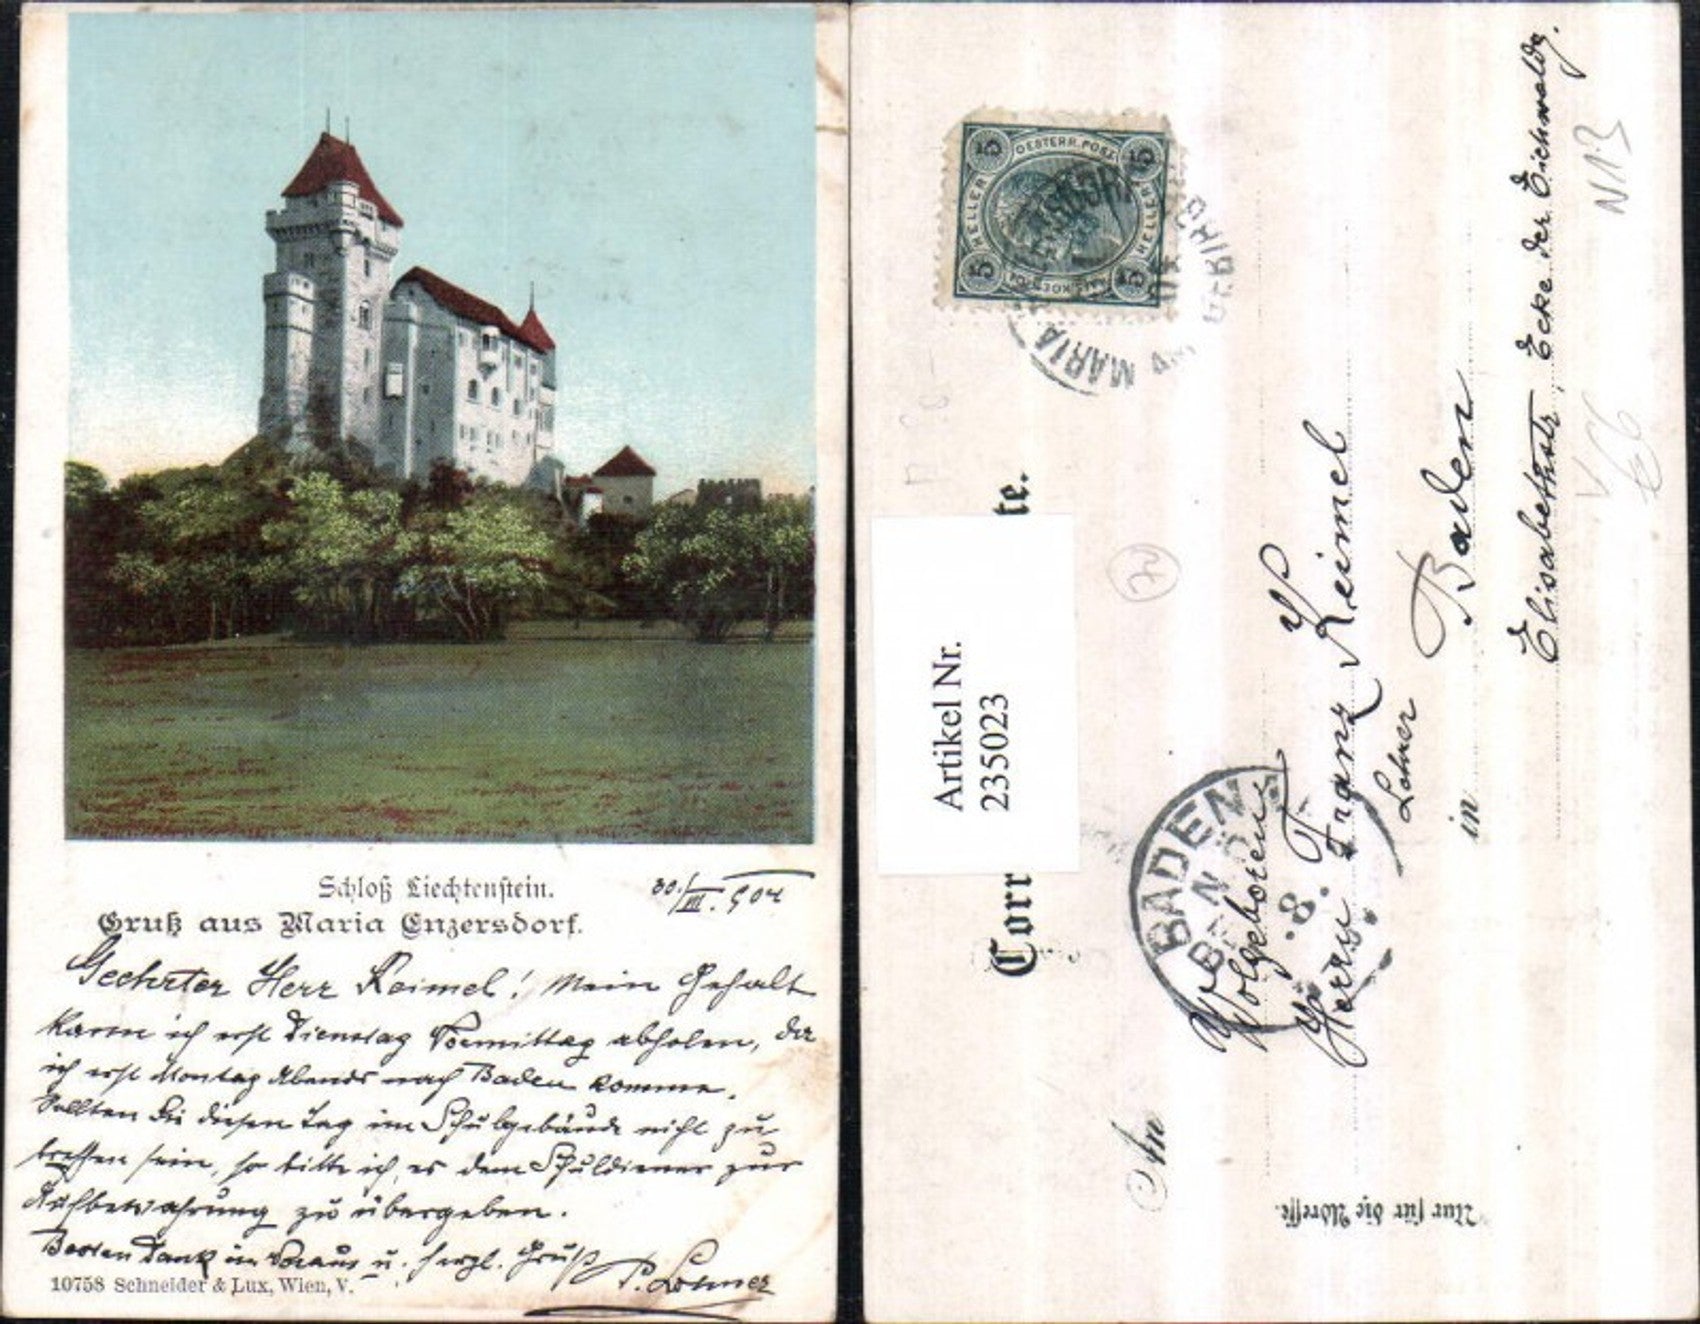 Schloß Liechtenstein.
30./VII. 904
Gruß aus Maria Enzersdorf.
Geehrter Herr Reimel! Mein Gehalt
kann ich erst Dienstag Vormittag abholen, da
ich erst Montag Abends nach Baden komme.
Sollten Sie diesen Tag im Schulgebäude nicht zu
treffen sein, so bitte ich, es dem Schuldiener zur
Aufbewahrung zu übergeben.
Besten Dank im Voraus u. herzl. Gruß
10758 Schneider & Lux, Wien, V.
OESTERR. POST
5 5
HELLER HELLER
5 5
MARIA
Artikel Nr.
235023
Corr
te.
BADEN
An
Wolgeboren
Herrn Franz Reimel
Lehrer
in Baden
Elisabethstr, Ecke der Eichwaldg.
N13
Nur für die Adresse.